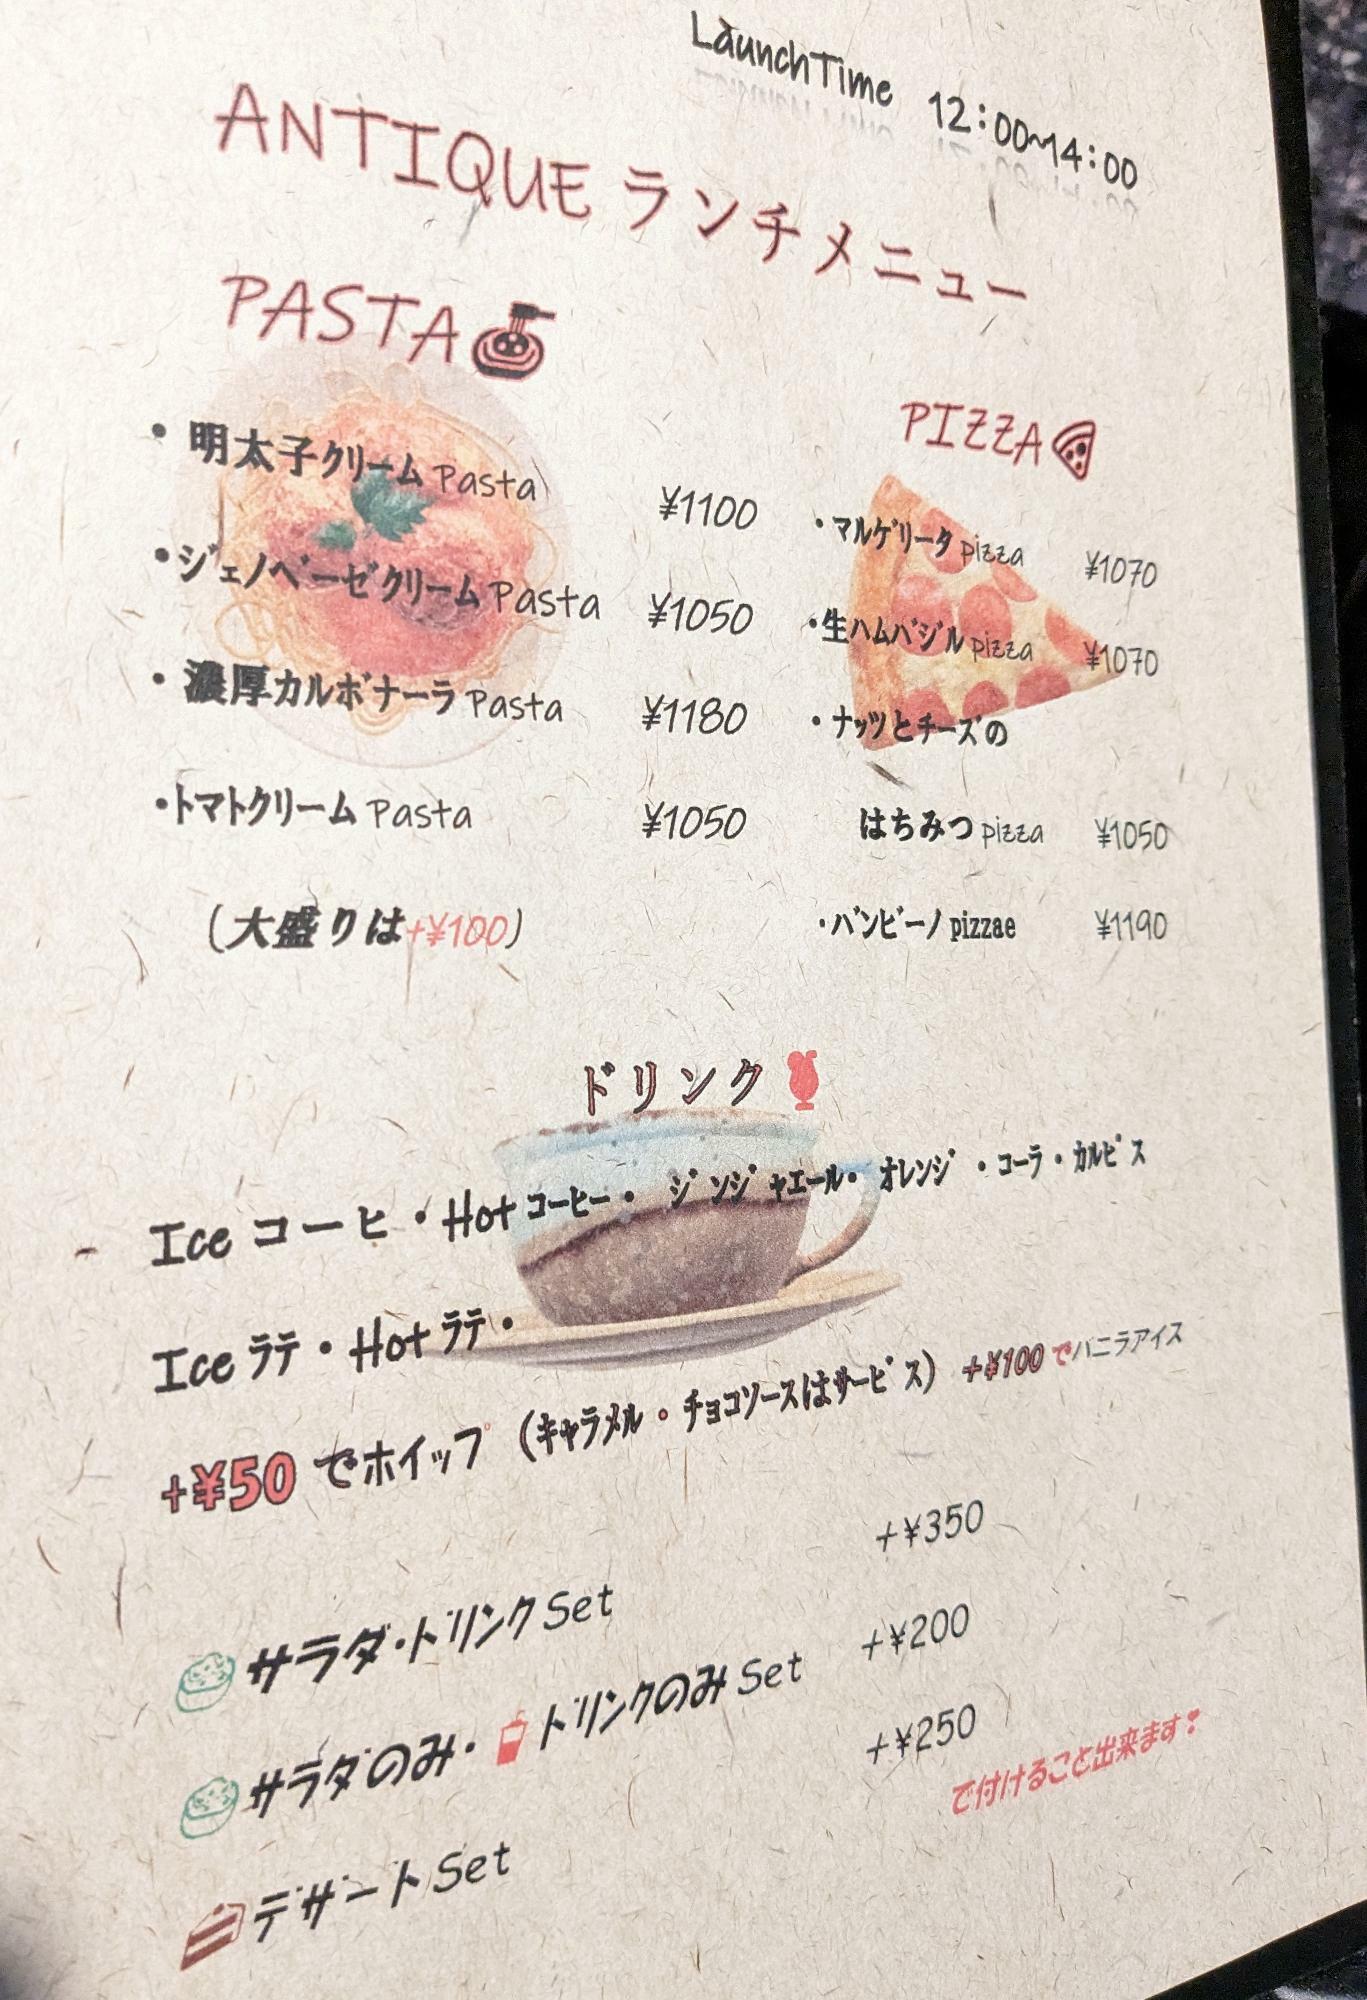 LaunchTime 12:00~14:00
ANTIQUE ランチメニュー
PASTA
・明太子クリームPasta ¥1100
・ジェノベーゼクリームPasta ¥1050
・濃厚カルボナーラPasta ¥1180
・トマトクリームPasta ¥1050
(大盛りは+¥100)
PIZZA
・マルゲリータpizza ¥1070
・生ハムバジルpizza ¥1070
・ナッツとチーズの
はちみつpizza ¥1050
・バンビーノpizzae ¥1190
ドリンク
Ice コーヒ・Hotコーヒー・ ジンジャエール・オレンジ・コーラ・カルピス
Iceラテ・Hotラテ・
+¥50 でホイップ (キャラメル・チョコソースはサービス) +¥100 でバニラアイス
サラダ・ドリンクSet +¥350
サラダのみ・ドリンクのみSet +¥200
デザートSet +¥250
で付けること出来ます❣